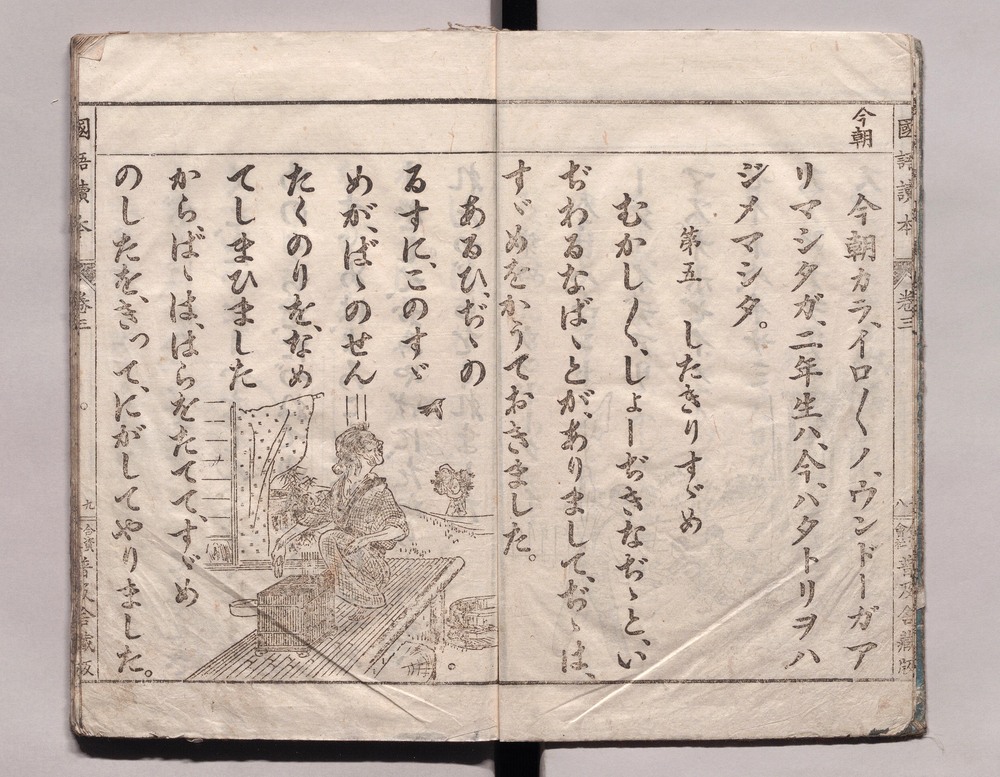 國語讀本 卷三 八
今朝
今朝カラ、イロ〳〵ノ、ウンドーガア
リマシタガ、二年生ハ、今、ハタトリヲハ
ジメマシタ。
第五 したきりすゞめ
むかし〳〵、しょーぢきなぢゞと、い
ぢわるなばゞとが、ありまして、ぢゞは、
すゞめをかうておきました。
あるひ、ぢゞの
るすに、このすゞ
めが、ばゞのせん
たくのりを、なめ
てしまひました
からばゞは、はらをたてて、すゞめ
のしたを、きって、にがしてやりました。
國語讀本 卷三 九 合資普及舍藏版